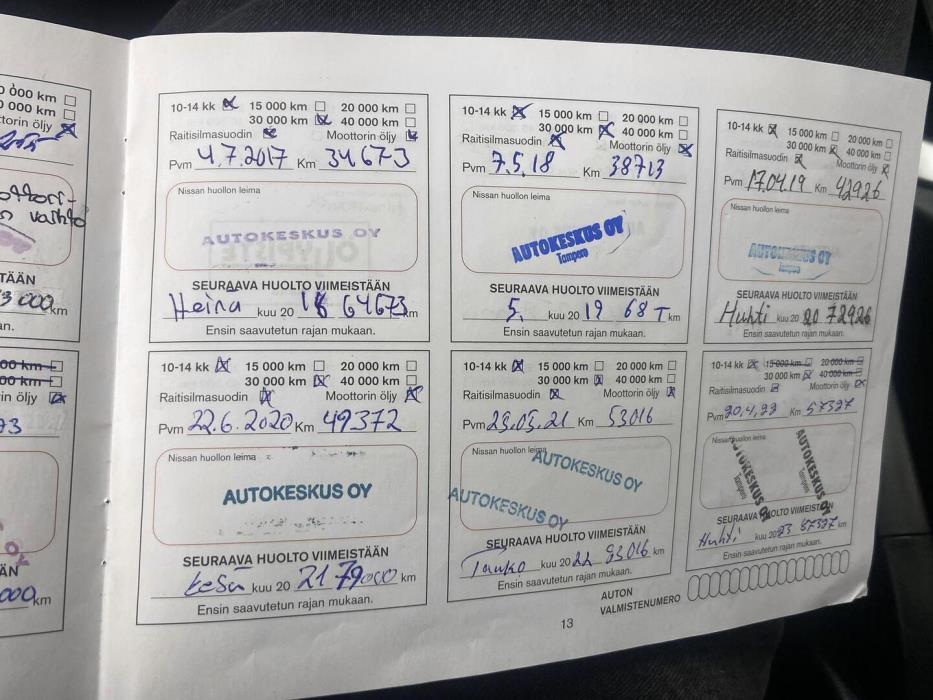 0 000 km
0 000 km
ttorin öljy
ottori-
n vaihto
TÄÄN
3 000 km
an.
00 km
00 km
in öljy
73
ÄN
000 km
an.
10-14 kk 15 000 km 20 000 km
30 000 km 40 000 km
Raitisilmasuodin Moottorin öljy
Pvm 4.7.2017 Km 34673
Nissan huollon leima
AUTOKESKUS OY
SEURAAVA HUOLTO VIIMEISTÄÄN
Heinä kuu 20 18 64673 km
Ensin saavutetun rajan mukaan.
10-14 kk 15 000 km 20 000 km
30 000 km 40 000 km
Raitisilmasuodin Moottorin öljy
Pvm 7.5.18 Km 38713
Nissan huollon leima
AUTOKESKUS OY
Tampere
SEURAAVA HUOLTO VIIMEISTÄÄN
5. kuu 20 19 68 T km
Ensin saavutetun rajan mukaan.
10-14 kk 15 000 km 20 000 km
30 000 km 40 000 km
Raitisilmasuodin Moottorin öljy
Pvm 17.04.19 Km 42926
Nissan huollon leima
AUTOKESKUS OY
Tampere
SEURAAVA HUOLTO VIIMEISTÄÄN
Huhti kuu 20 20 72926 km
Ensin saavutetun rajan mukaan.
10-14 kk 15 000 km 20 000 km
30 000 km 40 000 km
Raitisilmasuodin Moottorin öljy
Pvm 22.6.2020 Km 49372
Nissan huollon leima
AUTOKESKUS OY
SEURAAVA HUOLTO VIIMEISTÄÄN
Kesä kuu 20 21 79000 km
Ensin saavutetun rajan mukaan.
10-14 kk 15 000 km 20 000 km
30 000 km 40 000 km
Raitisilmasuodin Moottorin öljy
Pvm 25.05.21 Km 53016
Nissan huollon leima
AUTOKESKUS OY
AUTOKESKUS OY
SEURAAVA HUOLTO VIIMEISTÄÄN
Touko kuu 20 22 83016 km
Ensin saavutetun rajan mukaan.
10-14 kk 15 000 km 20 000 km
30 000 km 40 000 km
Raitisilmasuodin Moottorin öljy
Pvm 20.4.22 Km 57327
Nissan huollon leima
AUTOKESKUS OY
Tampere
AUTOKESKUS OY
Tampere
SEURAAVA HUOLTO VIIMEISTÄÄN
Huhti kuu 20 23 87327 km
Ensin saavutetun rajan mukaan.
AUTON
VALMISTENUMERO
13